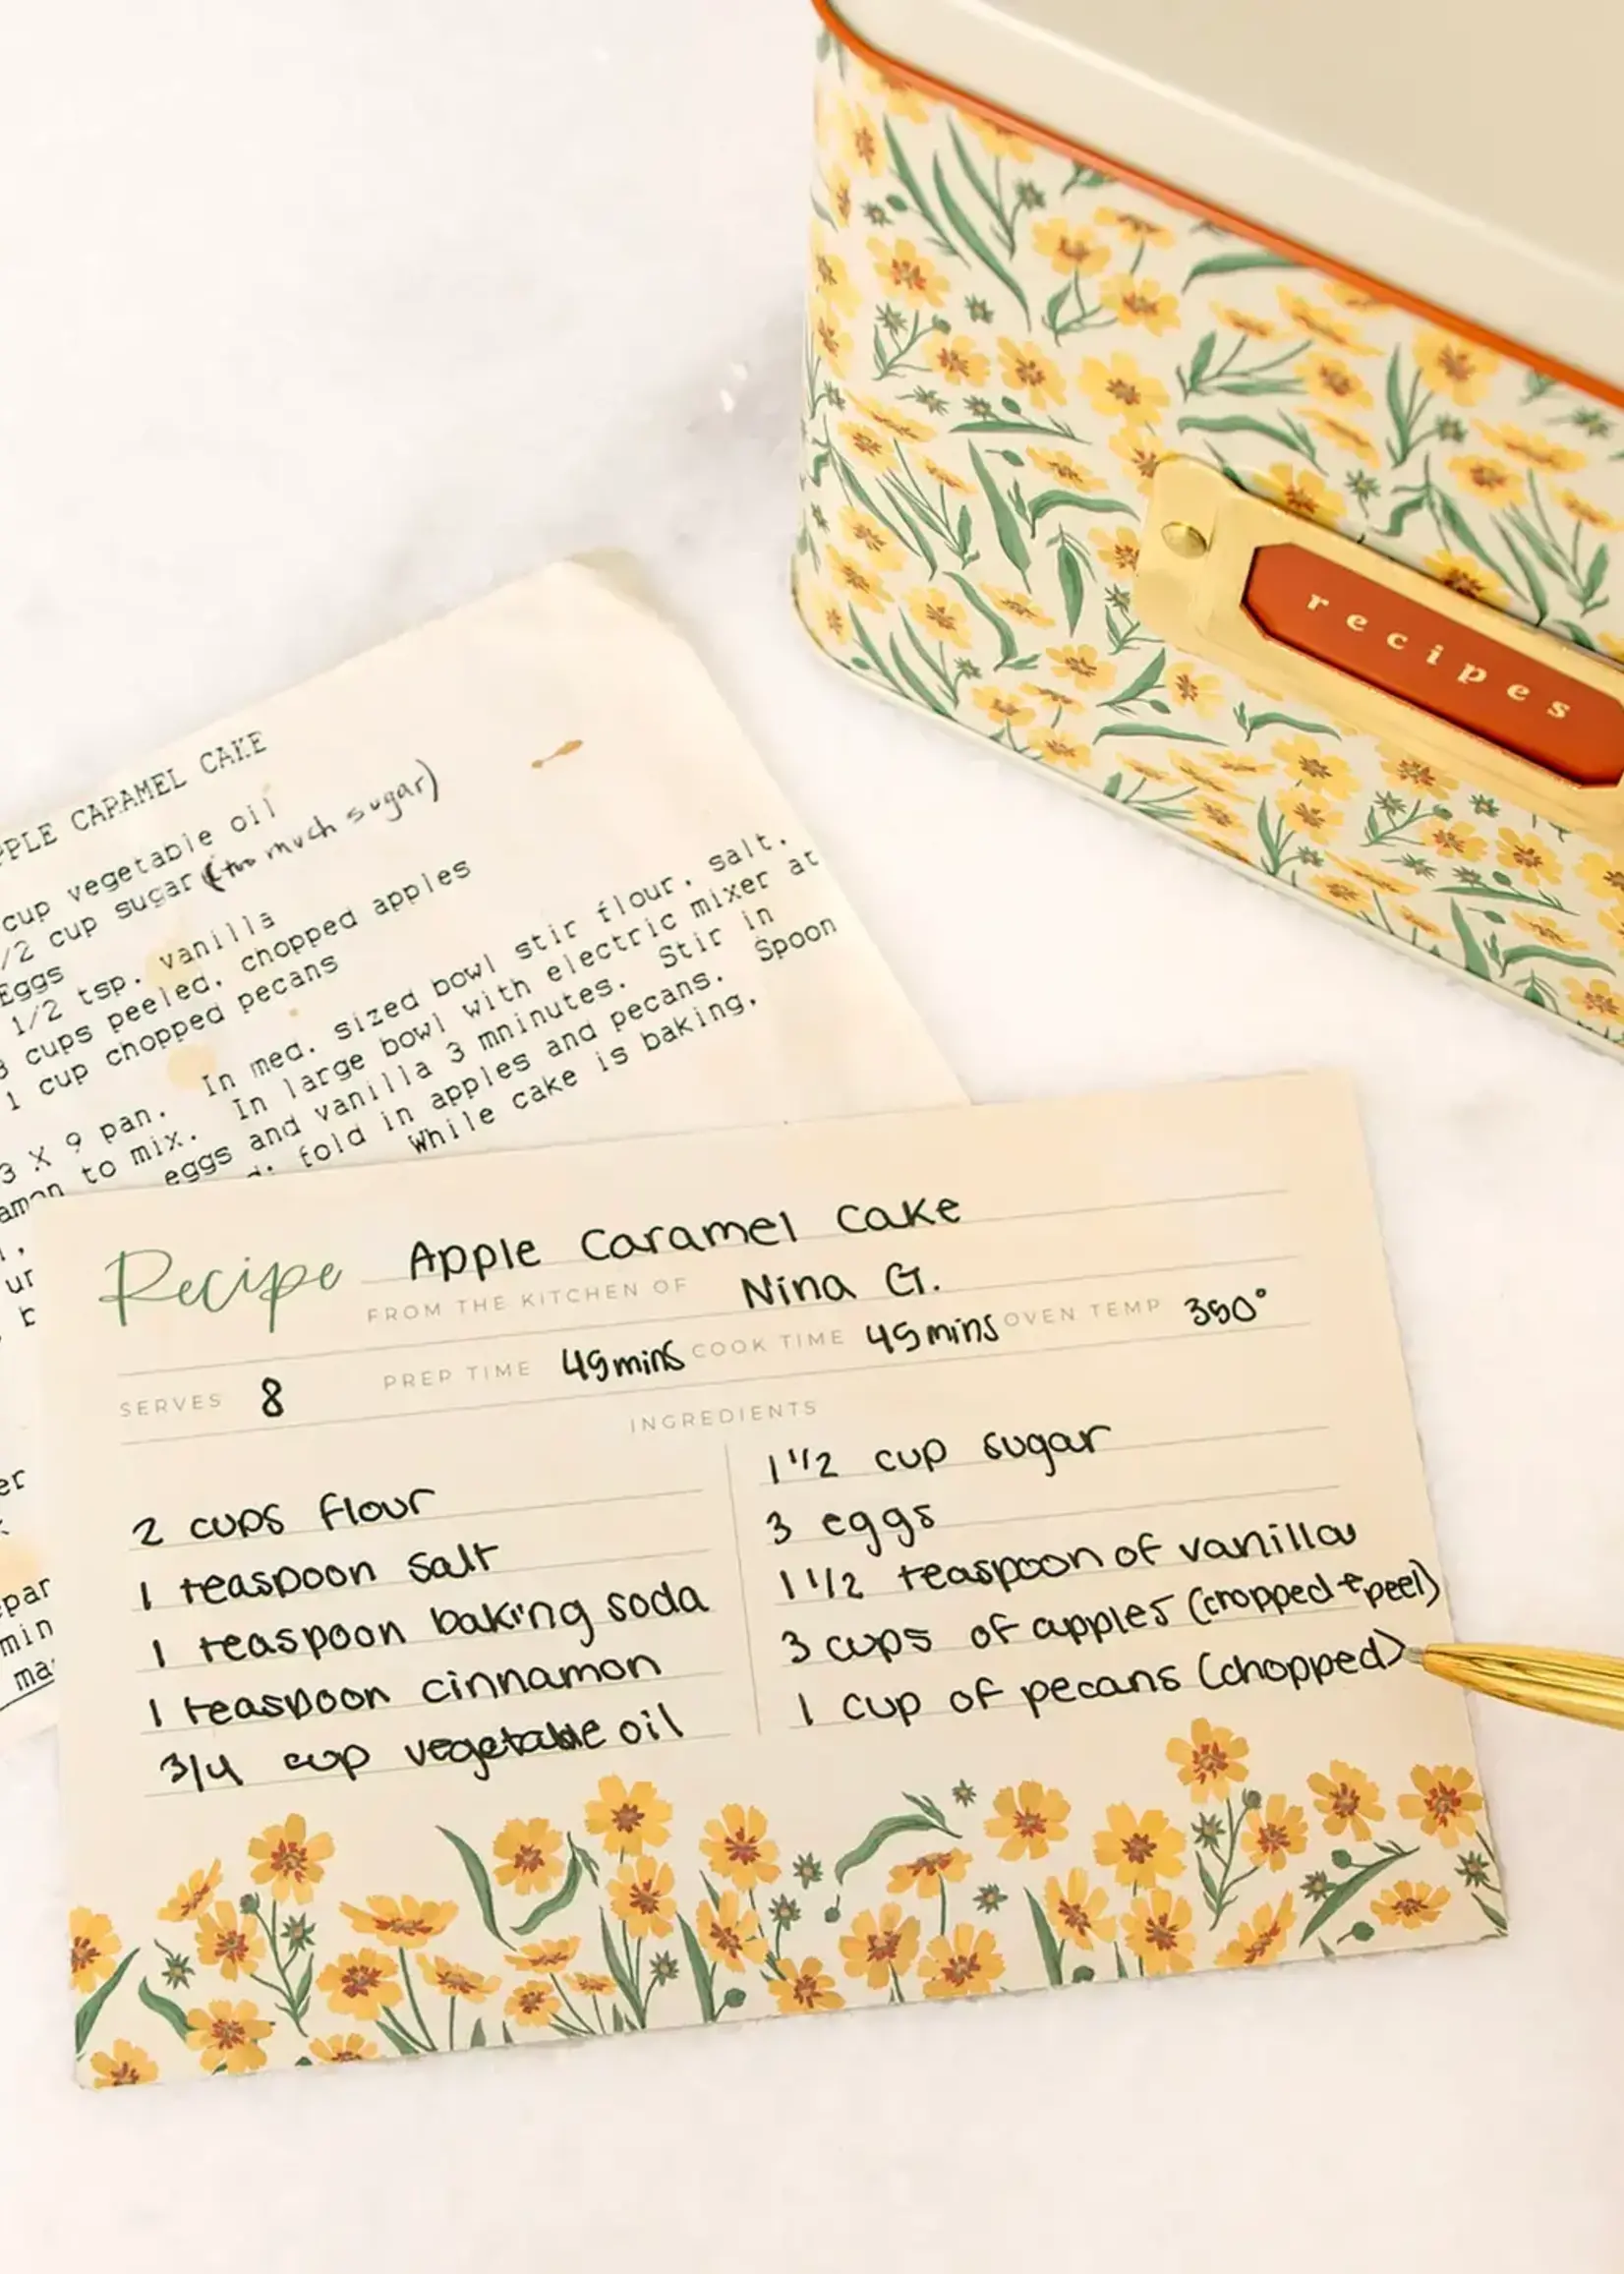 recipes
PPLE CARAMEL CAKE
cup vegetable oil
/2 cup sugar (too much sugar)
Eggs
1/2 tsp. vanilla
3 cups peeled, chopped apples
1 cup chopped pecans
3 X 9 pan. In med. sized bowl stir flour, salt,
to mix. In large bowl with electric mixer at
eggs and vanilla 3 mninutes. Stir in
fold in apples and pecans. Spoon
While cake is baking,
Recipe Apple Caramel Cake
FROM THE KITCHEN OF Nina G.
SERVES 8 PREP TIME 45mins COOK TIME 45mins OVEN TEMP 350°
INGREDIENTS
2 cups flour
1 teaspoon salt
1 teaspoon baking soda
1 teaspoon cinnamon
3/4 cup vegetable oil
1 1/2 cup sugar
3 eggs
1 1/2 teaspoon of vanilla
3 cups of apples (chopped + peel)
1 cup of pecans (chopped)